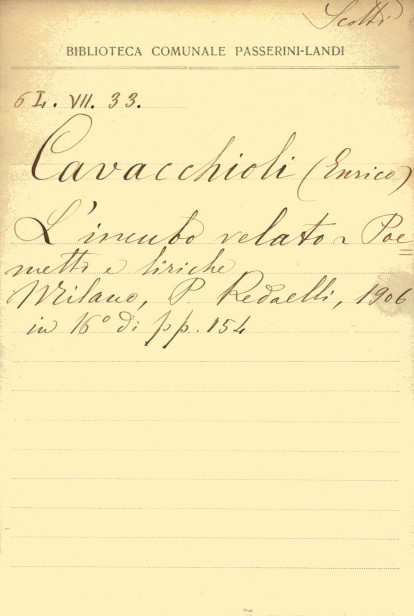 Scotti
BIBLIOTECA COMUNALE PASSERINI-LANDI
6 L. VII. 33.
Cavacchioli (Enrico)
L'incubo velato ~ Poe=
metti e liriche
Milano, P. Redaelli, 1906
in 16° di pp. 154